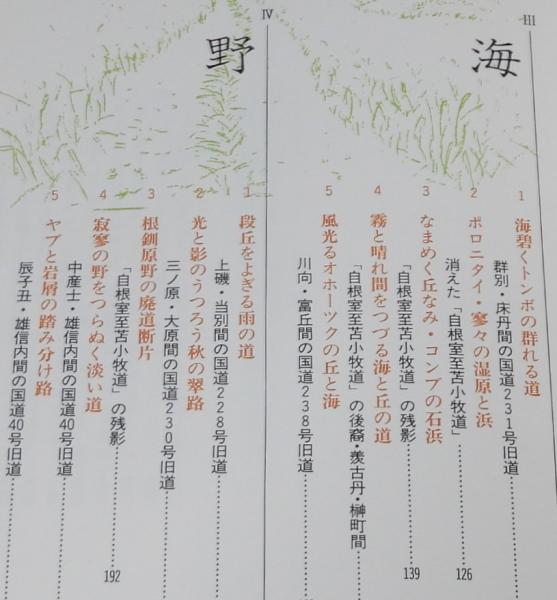 III
海
1 海碧くトンボの群れる道
群別・床丹間の国道231号旧道
2 ポロニタイ・寥々の湿原と浜
消えた「自根室至苫小牧道」
126
3 なまめく丘なみ・コンブの石浜
「自根室至苫小牧道」の残影
139
4 霧と晴れ間をつづる海と丘の道
「自根室至苫小牧道」の後裔・羨古丹・榊町間
5 風光るオホーツクの丘と海
川向・富丘間の国道238号旧道
IV
野
1 段丘をよぎる雨の道
上磯・当別間の国道228号旧道
2 光と影のうつろう秋の翠路
三ノ原・大原間の国道230号旧道
3 根釧原野の廃道断片
「自根室至苫小牧道」の残影
192
4 寂寥の野をつらぬく淡い道
中産士・雄信内間の国道40号旧道
5 ヤブと岩屑の踏み分け路
辰子丑・雄信内間の国道40号旧道